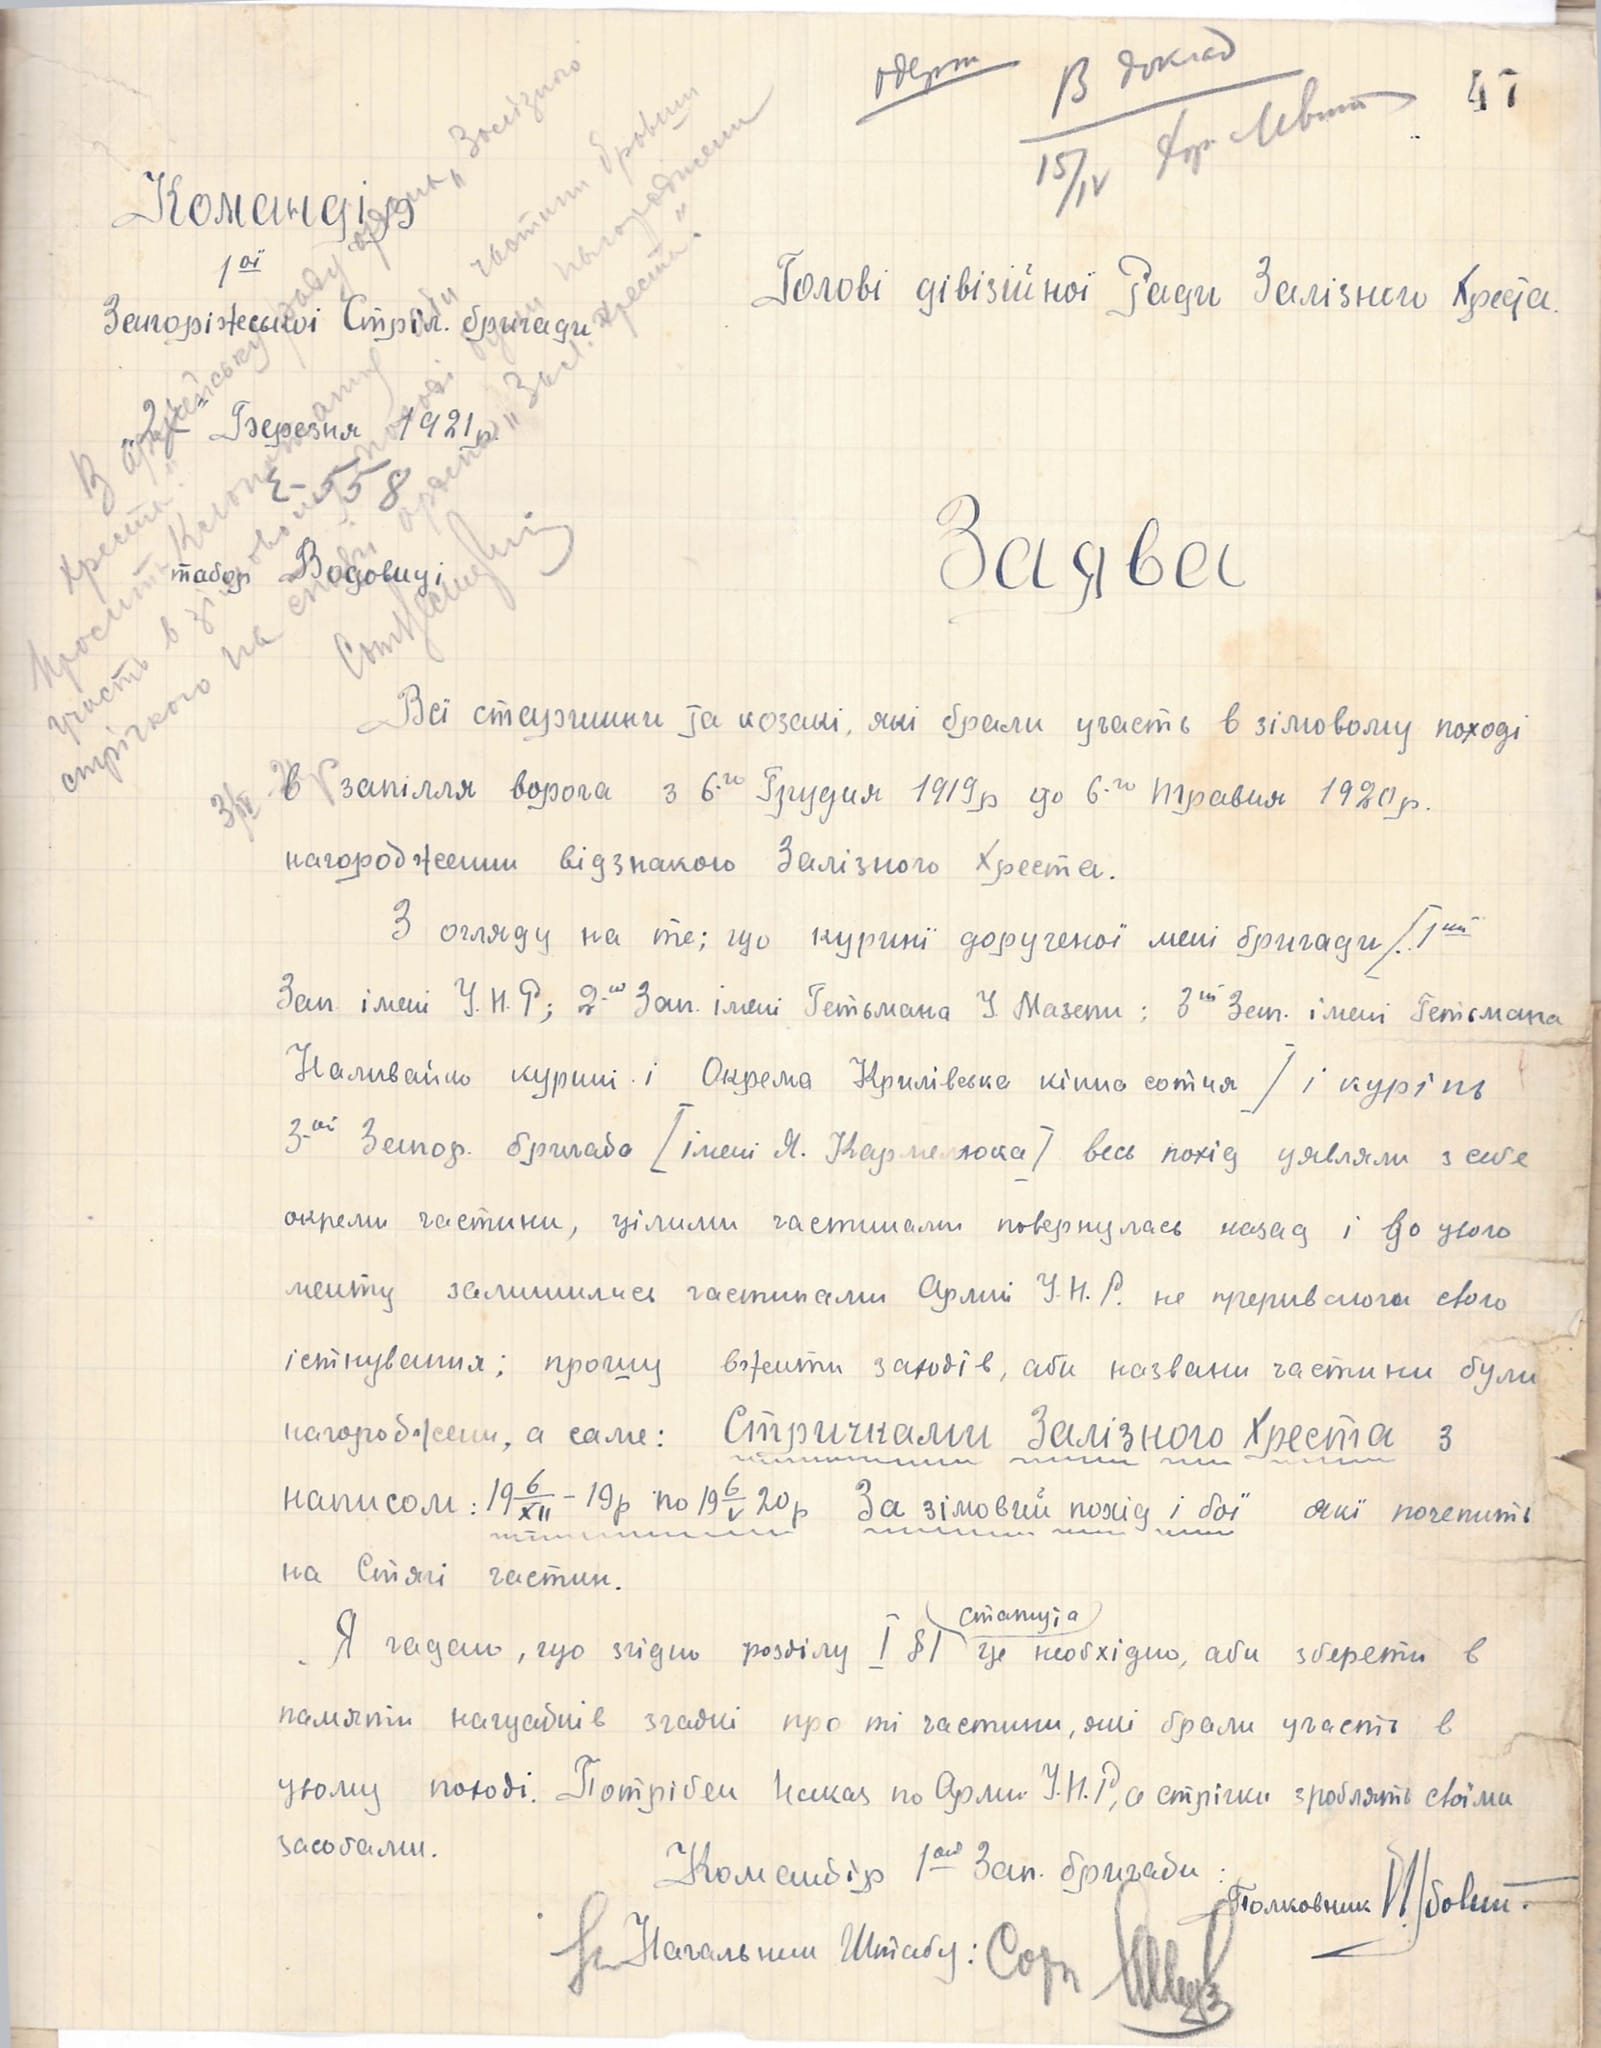 47
В доклад
15/IV
Командір
1ої
Запоріжської Стріл. бригади
Голові дівізійної Ради Залізного Хреста.
Березня 1921р.
558
табор Вадовиці
Заява
В армейську раду ордена „Залізного
Хреста"
участь в зімовом поході були нагороджени
стрічкою на стяги ордена „Заліз. Хреста".
Всі старшини та козакі, які брали участь в зімовому поході
в запілля ворога з 6-го Грудня 1919р до 6-го травня 1920р.
нагороджени відзнакою Залізного Хреста.
З огляду на те; що куріні дорученої мені бригади /1ший
Зап. імені У.Н.Р; 2-й Зап. імені Гетьмана І. Мазепи; 3ій Зап. імені Гетьмана
Наливайко куріні і Окрема Крилівська кінна сотня / і курінь
3-ої Запор. бригади [імені Я. Кармелюка] весь похід уявляли з себе
окреми частини, цілими частинами повернулась назад і до цього
менту залишились частинами Армії У.Н.Р. не прериваючи свого
істнування; прошу вжити заходів, аби названи частини були
нагороджени, а саме: Стричками Залізного Хреста з
написом: 19 6/XII - 19р по 19 6/V 20р За зімовий похід і бої які почепить
на Стягі частин.
Я гадаю, що згідно розділу І §1 (статута) це необхідно, аби зберегти в
памяти нащадків згадкі про ті частини, які брали участь в
цьому поході. Потрібен Наказ по Армії У.Н.Р, а стрічки зроблять своїми
засобами.
Командір 1ої Зап. бригади:
Полковник
Начальник Штабу: Сотн